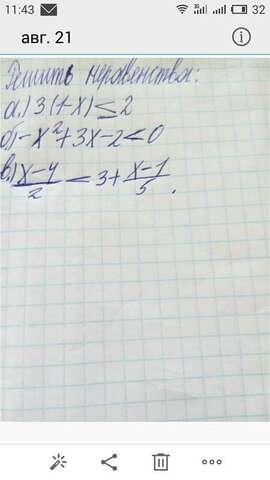 11:43 32
авг. 21
Решить неравенства:
а) 3(1-x) ≤ 2
б) -x²+3x-2<0
в) x-4/2 < 3+ x-1/5.